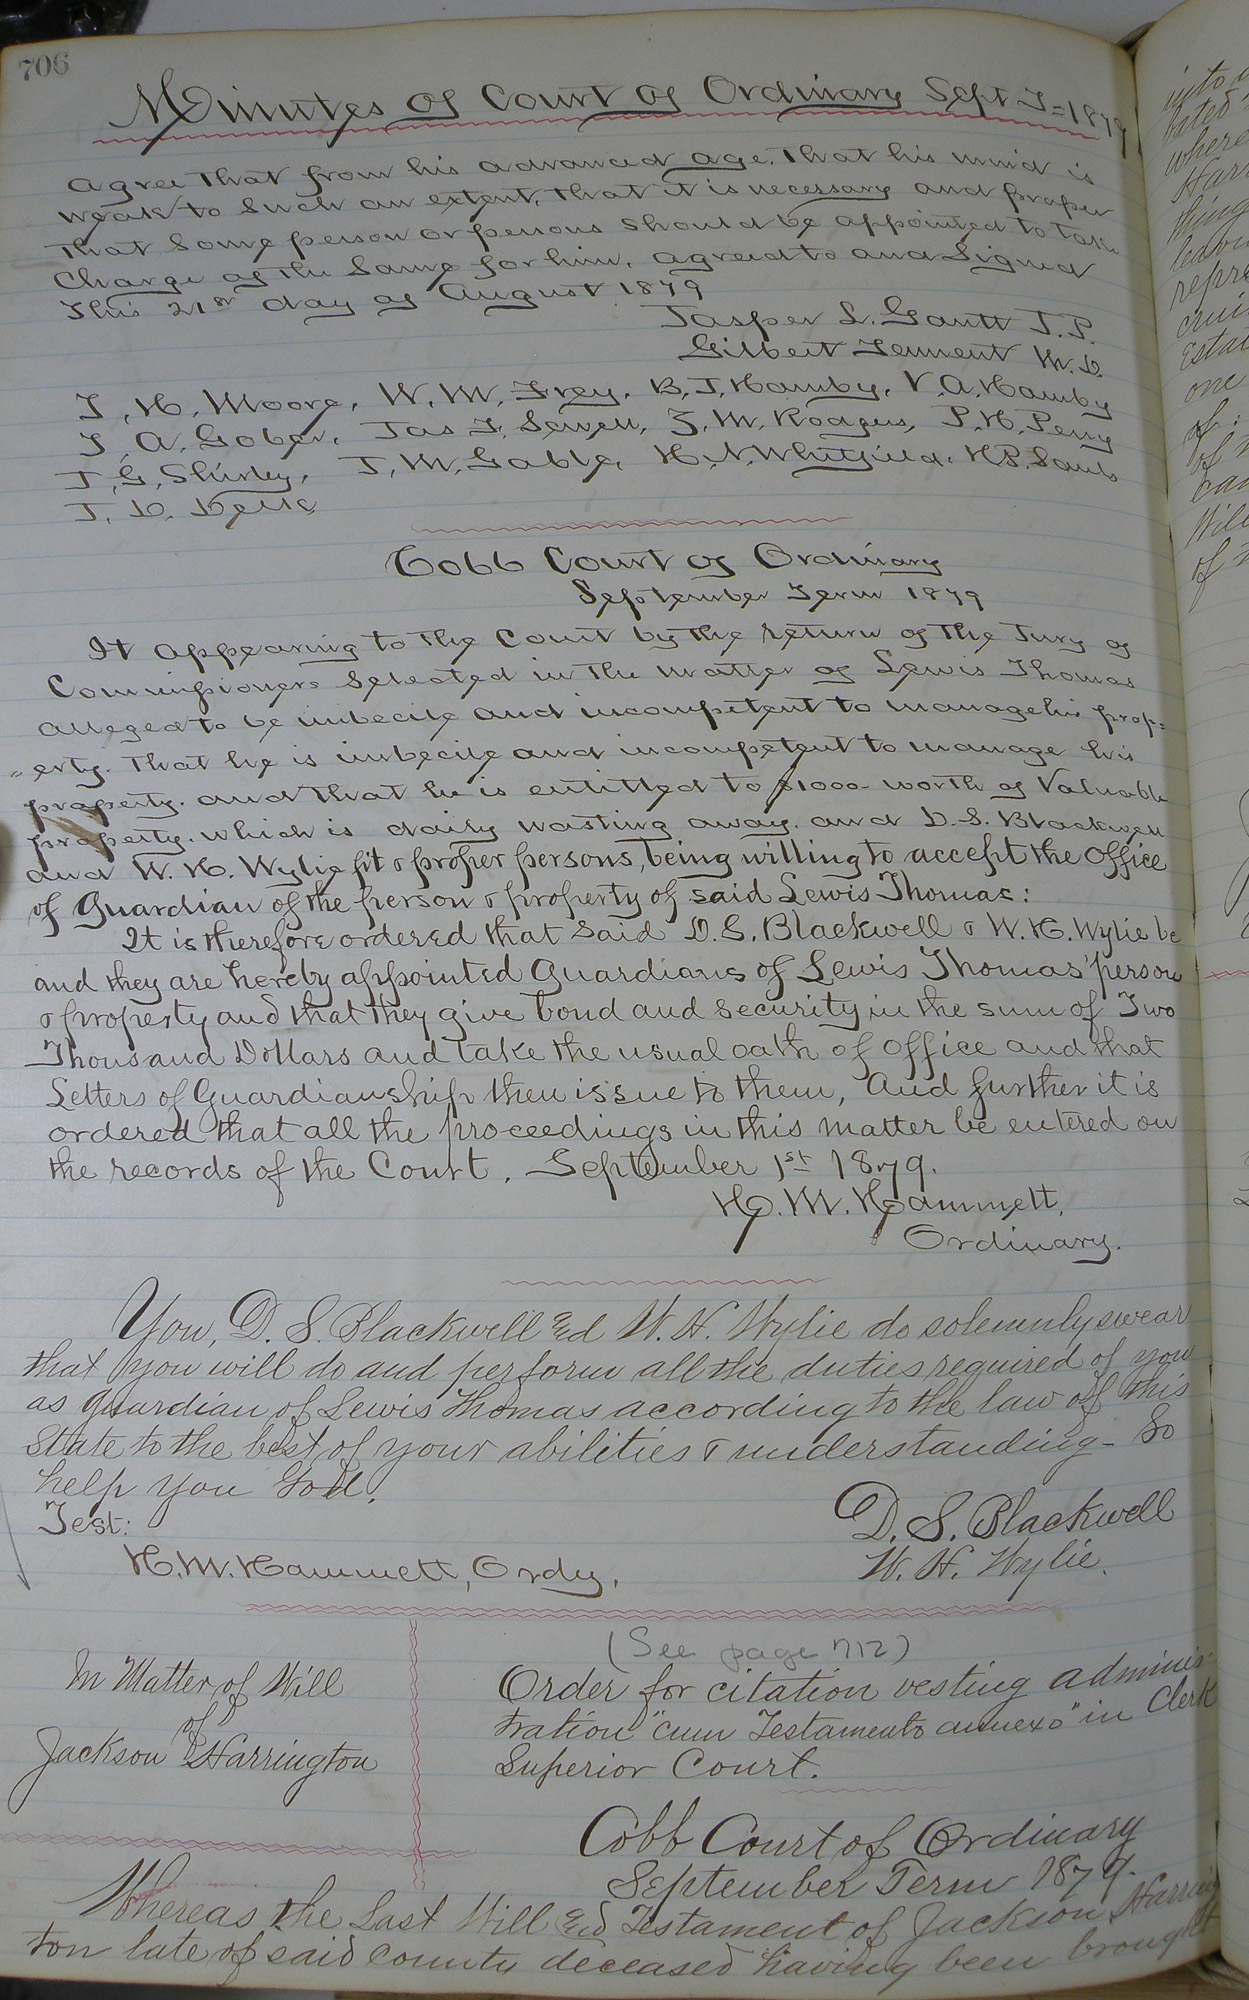 706
Minutes of Court of Ordinary Sept T=1879
agree that from his advanced age, that his mind is
weak to such an extent, that it is necessary and proper
that some person or persons should be appointed to take
charge of the same for him, agreed to and signed
This 21st day of August 1879
Jasper L. Gantt J.P.
Gilbert Tennent M.D.
J. H. Moore, W. M. Frey, B. T. Hamby, V. A. Hamby
J. A. Gober, Jas T. Sewell, Z. M. Rodgers, P. H. Perry
J. G. Shirley, J. M. Gable, H. N. Whitfield, H. P.
J. D.
Cobb Court of Ordinary
September Term 1879
It appearing to the Court by the return of the Jury of
Commissioners selected in the matter of Lewis Thomas
alleged to be imbecile and incompetent to manage his prop=
"erty. That he is imbecile and incompetent to manage his
property. and that he is entitled to $1000- worth of Valuable
property. which is daily wasting away. and D. S. Blackwell
and W. H. Wylie fit & proper persons, being willing to accept the Office
of Guardian of the person & property of said Lewis Thomas:
It is therefore ordered that said D. S. Blackwell & W. H. Wylie be
and they are hereby appointed Guardians of Lewis Thomas' person
& property and that they give bond and security in the sum of Two
Thousand Dollars and take the usual oath of Office and that
Letters of Guardianship then issue to them, And further it is
ordered that all the proceedings in this matter be entered on
the records of the Court. September 1st 1879.
H. M. Hammett,
Ordinary.
You, D. S. Blackwell and W. H. Wylie do solemnly swear
that you will do and perform all the duties required of you
as guardian of Lewis Thomas according to the law of this
State to the best of your abilities & understanding- So
help you God.
Test:
D. S. Blackwell
H. M. Hammett, Ordy,
W. H. Wylie.
(See page 712)
In Matter of Will
of
Jackson Harrington
Order for citation vesting adminis-
tration "cum Testamento annexo" in Clerk
Superior Court.
Cobb Court of Ordinary
September Term 1879.
Whereas the Last Will and Testament of Jackson Harring
ton late of said county deceased having been brought